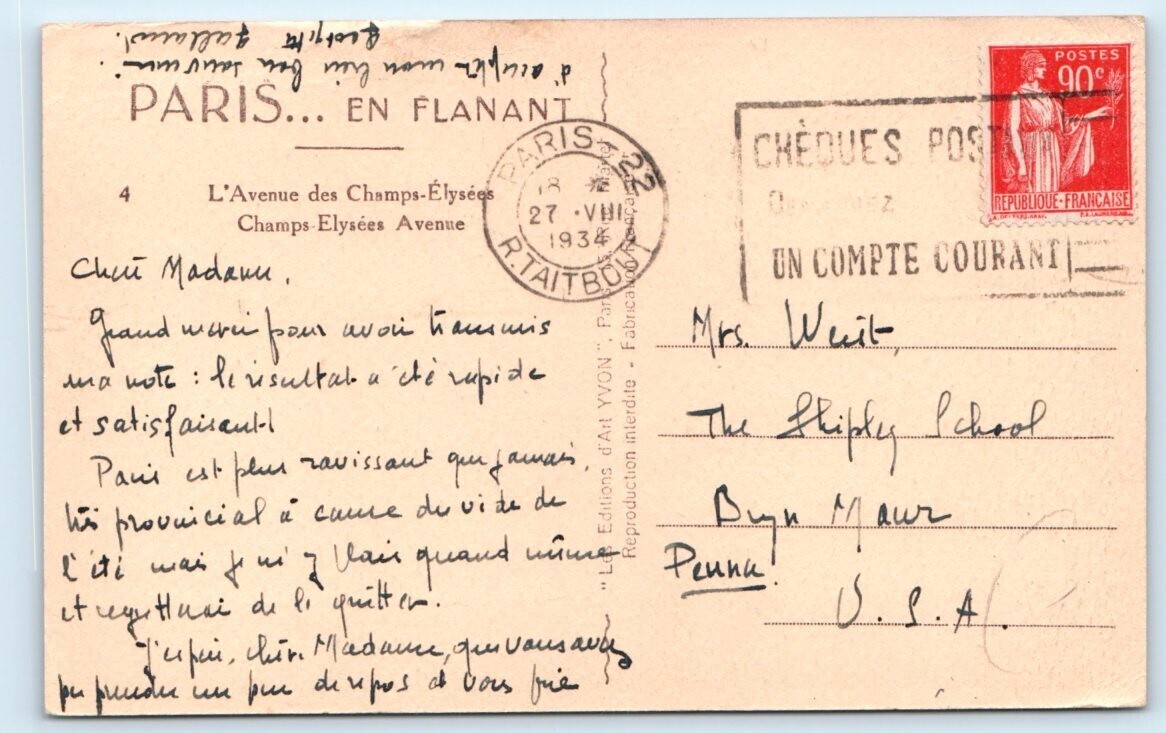 PARIS... EN FLANANT
4 L'Avenue des Champs-Élysées
Champs-Elysées Avenue
Chère Madame,
Grand merci pour avoir transmis
ma note : le résultat a été rapide
et satisfaisant!
Paris est plus ravissant que jamais,
très provincial à cause du vide de
l'été mais je m'y plais quand même
et regretterai de le quitter.
J'espère, chère Madame, que vous avez
pu prendre un peu de repos et vous prie
d'accepter mon bien bon souvenir.
"Les Editions d'Art YVON", Paris
Reproduction interdite - Fabrication Française
PARIS - 22
18
27 · VIII
1934
R. TAITBOUT
CHÈQUES POSTAUX
UN COMPTE COURANT
POSTES
90c
REPUBLIQUE-FRANÇAISE
Mrs.
The Shipley School
Bryn Mawr
Penna.
U. S. A.